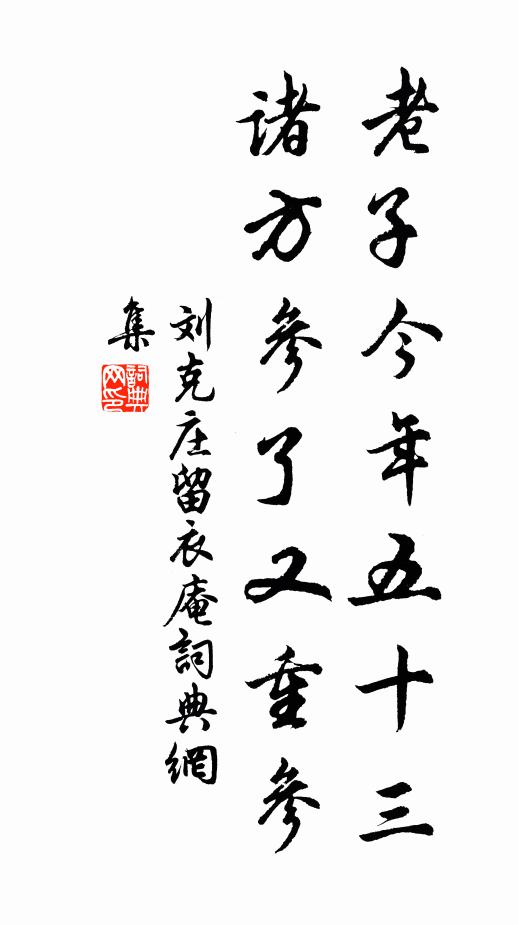 老子今年五十三
諸方參了又重參
刘克庄留衣庵詞典網
集
詞典網印